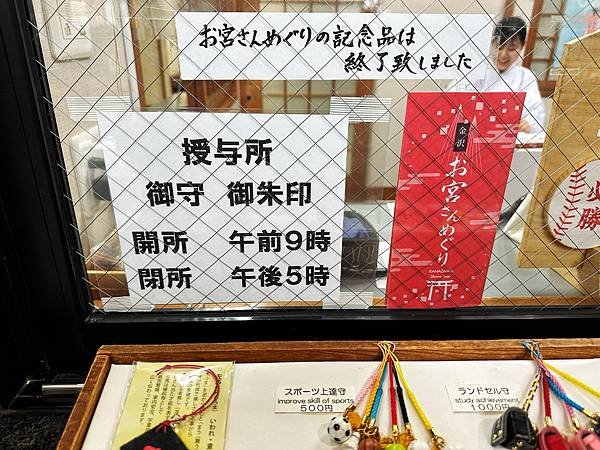 お宮さんめぐりの記念品は
終了致しました
授与所
御守 御朱印
開所 午前9時
閉所 午後5時
金沢
お宮さんめぐり
KANAZAWA
必勝
スポーツ上達守
improve skill of sports
500円
ランドセル守
study achievement
1000円